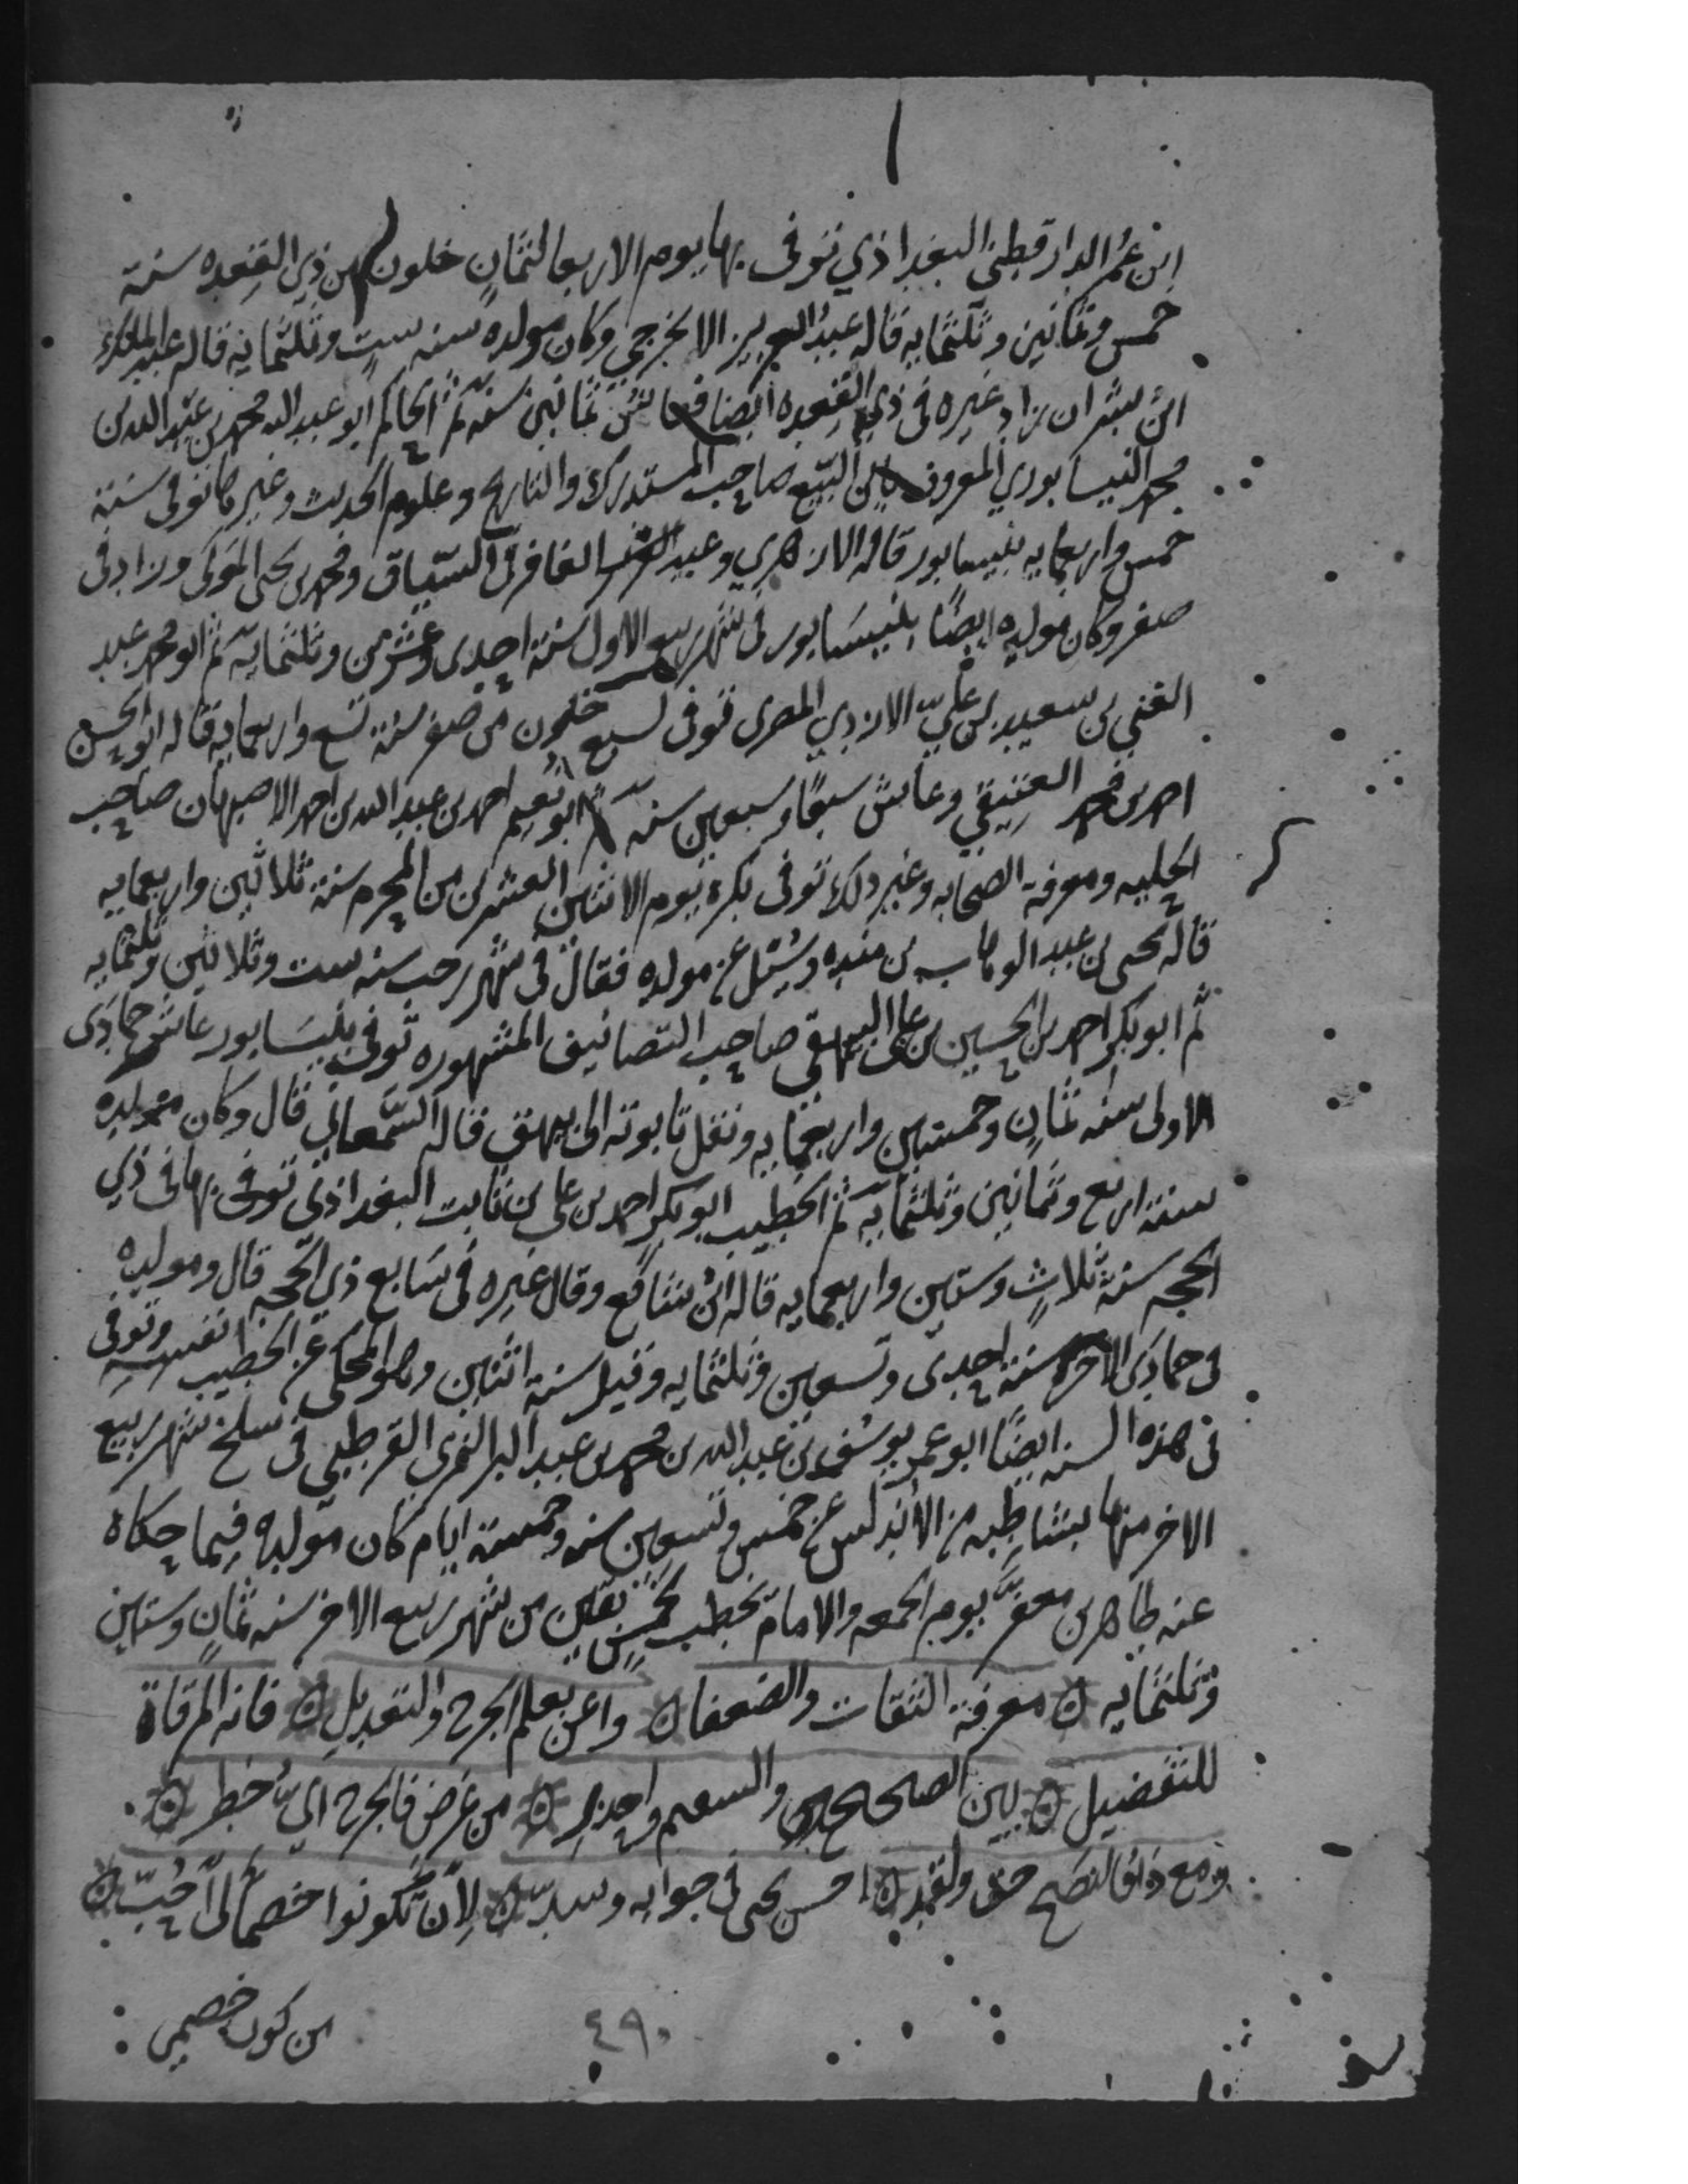 ابن عمر الدارقطني البغداذي توفى بها يوم الاربعا لثمانٍ خلون من ذي القعده سنة
خمس وثمانين وثلثمايه قاله عبد العزيز الازجي وكان مولده سنه ستٍ وثلثمايه قاله عبد الملك
ابن بشران زاد غيره فى ذي القعده ايضا ثمانين سنه ثم الحاكم ابو عبد الله محمد بن عبد الله بن
محمد النيسابوري المعروف بابن البيّع صاحب المستدرك والتاريخ وعلوم الحديث وغيرها توفى سنة
خمس واربعمايه بنيسابور قاله الازهري وعبد الغافر فى السّياق ومحمد بن يحيى المزكى وزاد فى
صفر وكان مولده ايضًا بنيسَابور فى شهر ربيع الاول سنة احدى وعشرين وثلثمايه ثم ابو محمد عبد
الغني بن سعيد بن عليّ الازدي المصرى توفى لسبع خلون من صفر سنة تسع واربعمايه قاله ابو الحسن
احمد بن محمد العتيقي وعاش سبعًا وسبعين سنه ثم ابو نُعيم احمد بن عبد الله بن احمد الاصبهاني صاحب
الحليه ومعرفة الصحابه وغير ذلك توفى بكرة يوم الاثنين العشرين من المحرم سنة ثلاثين واربعمايه
قاله يحيى بن عبد الوهاب بن منده وسُئل عن مولده فقال فى شهر رجب سنه ست وثلاثين وثلثمايه
ثم ابو بكر احمد بن الحسين بن على البيهقي صاحب التصانيف المشهوره توفى بنيسَابور عاشر جمادَى
الاولى سنه ثمانٍ وخمسين واربعمايه ونقل تابوته الى بيهق قاله السّمعاني قال وكان مولده
سنة اربع وثمانين وثلثمايه ثم الخطيب ابو بكر احمد بن على بن ثابت البغداذي توفى بها فى ذي
الحجه سنة ثلاثٍ وستين واربعمايه قاله ابن شافع وقال غيره فى سَابع ذي الحجه قال ومولده
فى جمادَى الاخره سنة احدى وتسعين وثلثمايه وقيل سنة اثنتين وهو المحكى عن الخطيب نفسه وتوفى
فى هذه السنه ايضًا ابو عمر يوسُف بن عبد الله بن محمد بن عبد البر النمري القرطبي فى سلخ شهر ربيع
الاخر منها بشاطِبه من الأندلس عن خمس وتسعين سنه وخمسة ايام كان مولده فيما حكاه
عنه طاهر بن مفوّز يوم الجمعه والامام يخطب لخمس بقين من شهر ربيع الاخر سنه ثمانٍ وستين
وثلثمايه ۞ معرفة الثقات والضعفا ۞ واعن بعلم الجرح والتعديلِ ۞ فانه المرقاة
للتفضيل ۞ بين الصحيح والسقيم واحذرِ ۞ من غرض فالجرح ايّ خطر ۞
ومع ذا فالنصح حق ولقد ۞ احسن يحيى فى جوابه وسدّ ۞ لأن تكونوا خصما لى احَبُّ ۞
من كون خصمى
٤٩٠